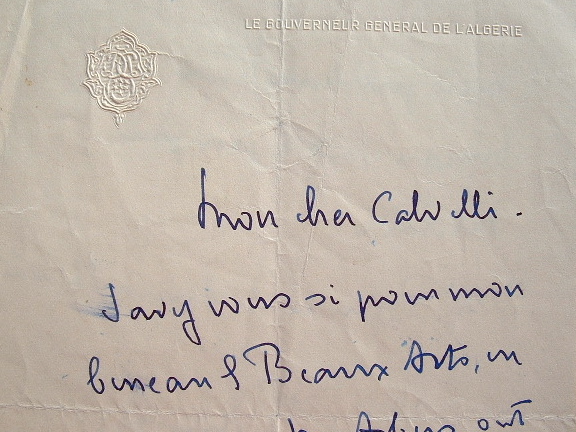 LE GOUVERNEUR GENERAL DE L'ALGERIE
Mon cher Calvelli.
Savez vous si pour mon
bureau & Beaux Arts, un
ont